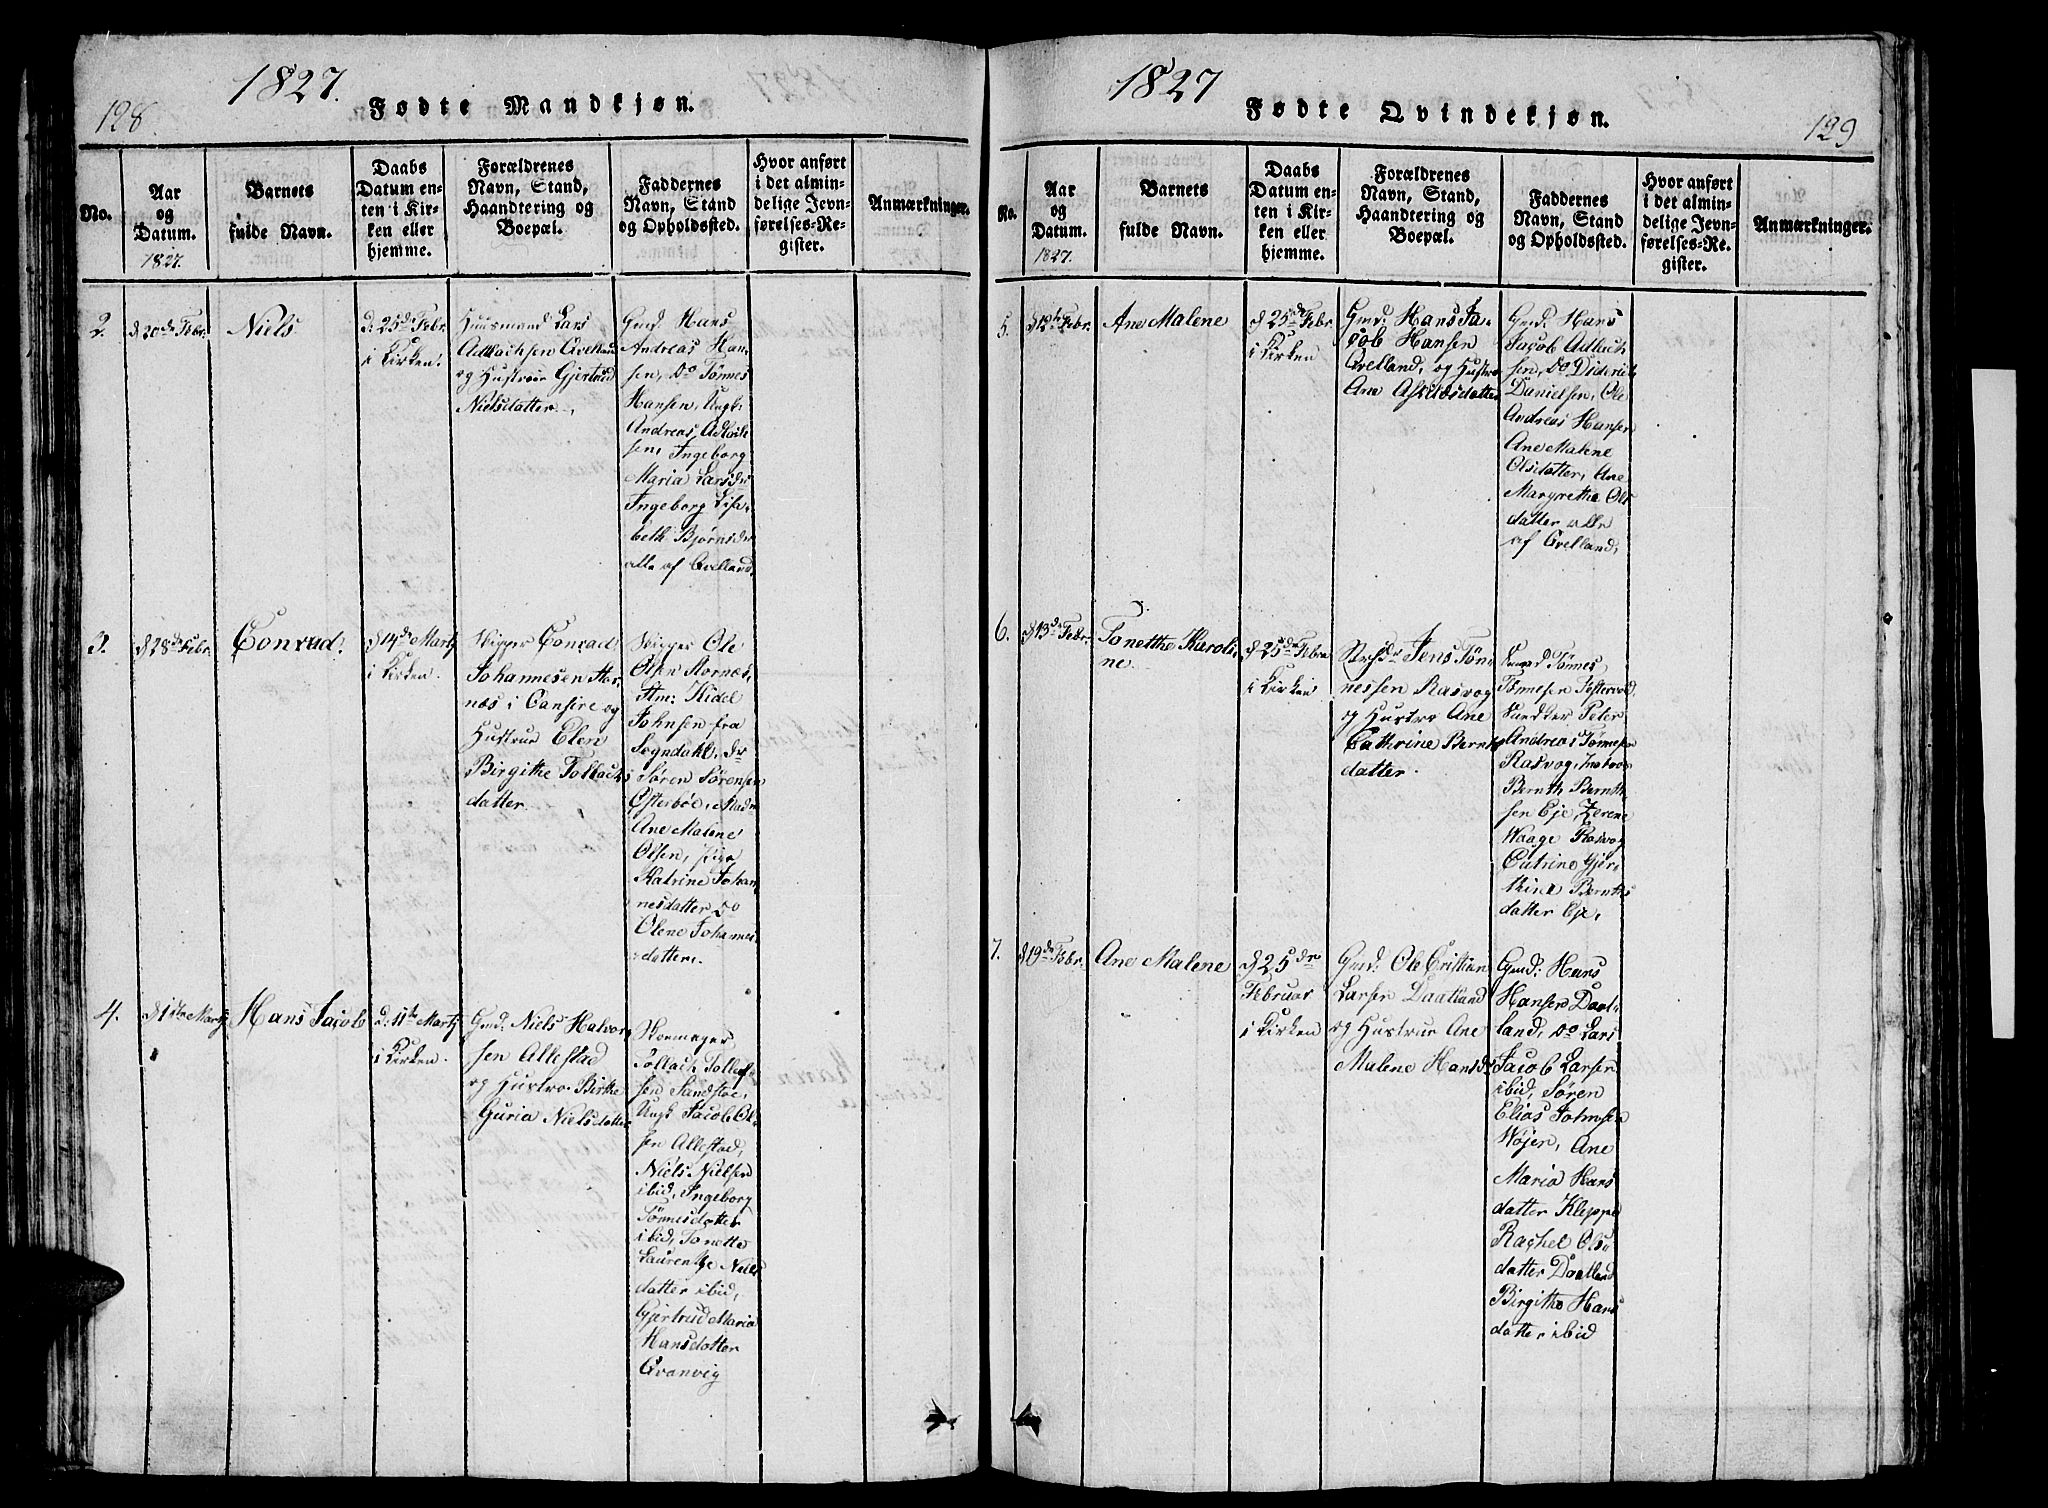 128
1827.
Fødte Mandkjøn.
No.
Aar
og
Datum.
1827.
Barnets
fulde Navn.
Daabs
Datum en-
ten i Kir-
ken eller
hjemme.
Forældrenes
Navn, Stand,
Haandtering og
Boepæl.
Faddernes
Navn, Stand
og Opholdssted.
Hvor anført
i det almin-
delige Jevn-
førelses-Re-
gister.
Anmærkninger.
2.
d 20de Febr.
Niels
d. 25de Febr.
i Kirken.
Huusmand Lars
Adlachsen Qvelland
og Hustrue Gjertrud
Nielsdatter.
Gmd. Hans
Andreas Han-
sen, do Tønnes
Hansen, Ungk.
Andreas Adlach-
sen, Ingeborg
Maria Larsdr
Ingeborg Lisa-
beth Bjørnsdr
alle af Qvelland.
3.
d 28de Febr.
Conrad.
d 14de Martz
i Kirken.
Skipper Conrad
Johannesen Stor-
næs i og
Hustrue Elen
Birgithe Tollachs
datter.
Skipper Ole
Olsen Stornæs,
Stm: Kidel
Johnsen fra
Sogndahl, dr
Søren Sørensen
Østerbøe, Mad.
Ane Malene
Olsen, Pige
Katrine Johan-
nesdatter do
Olene Johannes-
datter.
4.
d 1ste Martz
Hans Jacob
d: 11te Martz
i Kirken.
Gmd: Niels Halvor-
sen Allestad
og Hustro Birthe
Guria Nielsdatter
Skoemager
Tollach Tollef-
sen Sandstøe,
Ungk Jacob Ol-
sen Allestad,
Niels Nielsen
ibid, Ingeborg
Tønnesdatter
ibid, Tonette
Laurentze Niels
datter ibid,
Gjertrud Maria
Hansdatter
Qvanvig
1827
Fødte Qvindekjøn.
129
No.
Aar
og
Datum.
1827.
Barnets
fulde Navn.
Daabs
Datum en-
ten i Kir-
ken eller
hjemme.
Forældrenes
Navn, Stand,
Haandtering og
Boepæl.
Faddernes
Navn, Stand
og Opholdssted.
Hvor anført
i det almin-
delige Jevn-
førelses-Re-
gister.
Anmærkninger.
5.
d 12te Febr.
Ane Malene
d 25de Febr
i Kirken
Gmd: Hans Ja-
cob Hansen
Qvelland, og Hustro
Ane Aslaksdatter
Gmd: Hans
Jacob Adlach-
sen, do Diderich
Danielsen, Ole
Andreas Hansen
Ane Malene
Olsdatter, Ane
Margrethe Ols
datter alle
af Qvelland.
6.
d 13de Febr.
Tonetthe Karoli-
ne.
d 25de Febr
i Kirken
Jens Tøn-
nessen Rasvog
og Hustro Ane
Cathrine Bernts
datter.
Tønnes
Tønnesen Fostervold
Peter
Andreas Tønnesen
Rasvog,
Bernth Bernth-
sen Eje, Zerene
Waage Rasvog
Catrine Gjer-
thine Bernths
datter Eje,
7.
d 19de Febr.
Ane Malene
d 25de
Februar
i Kirken
Gmd: Ole Cristian
Larsen Daatland
og Hustrue Ane
Malene Hansdr
Gmd: Hans
Hansen Daat-
land, do Lars
Jacob Larsen
ibid, Søren
Elias Johnsen
Wøjen, Ane
Maria Hans
datter Kleppe
Rachel Ols-
datter Daatland
Birgithe Hans
datter ibid